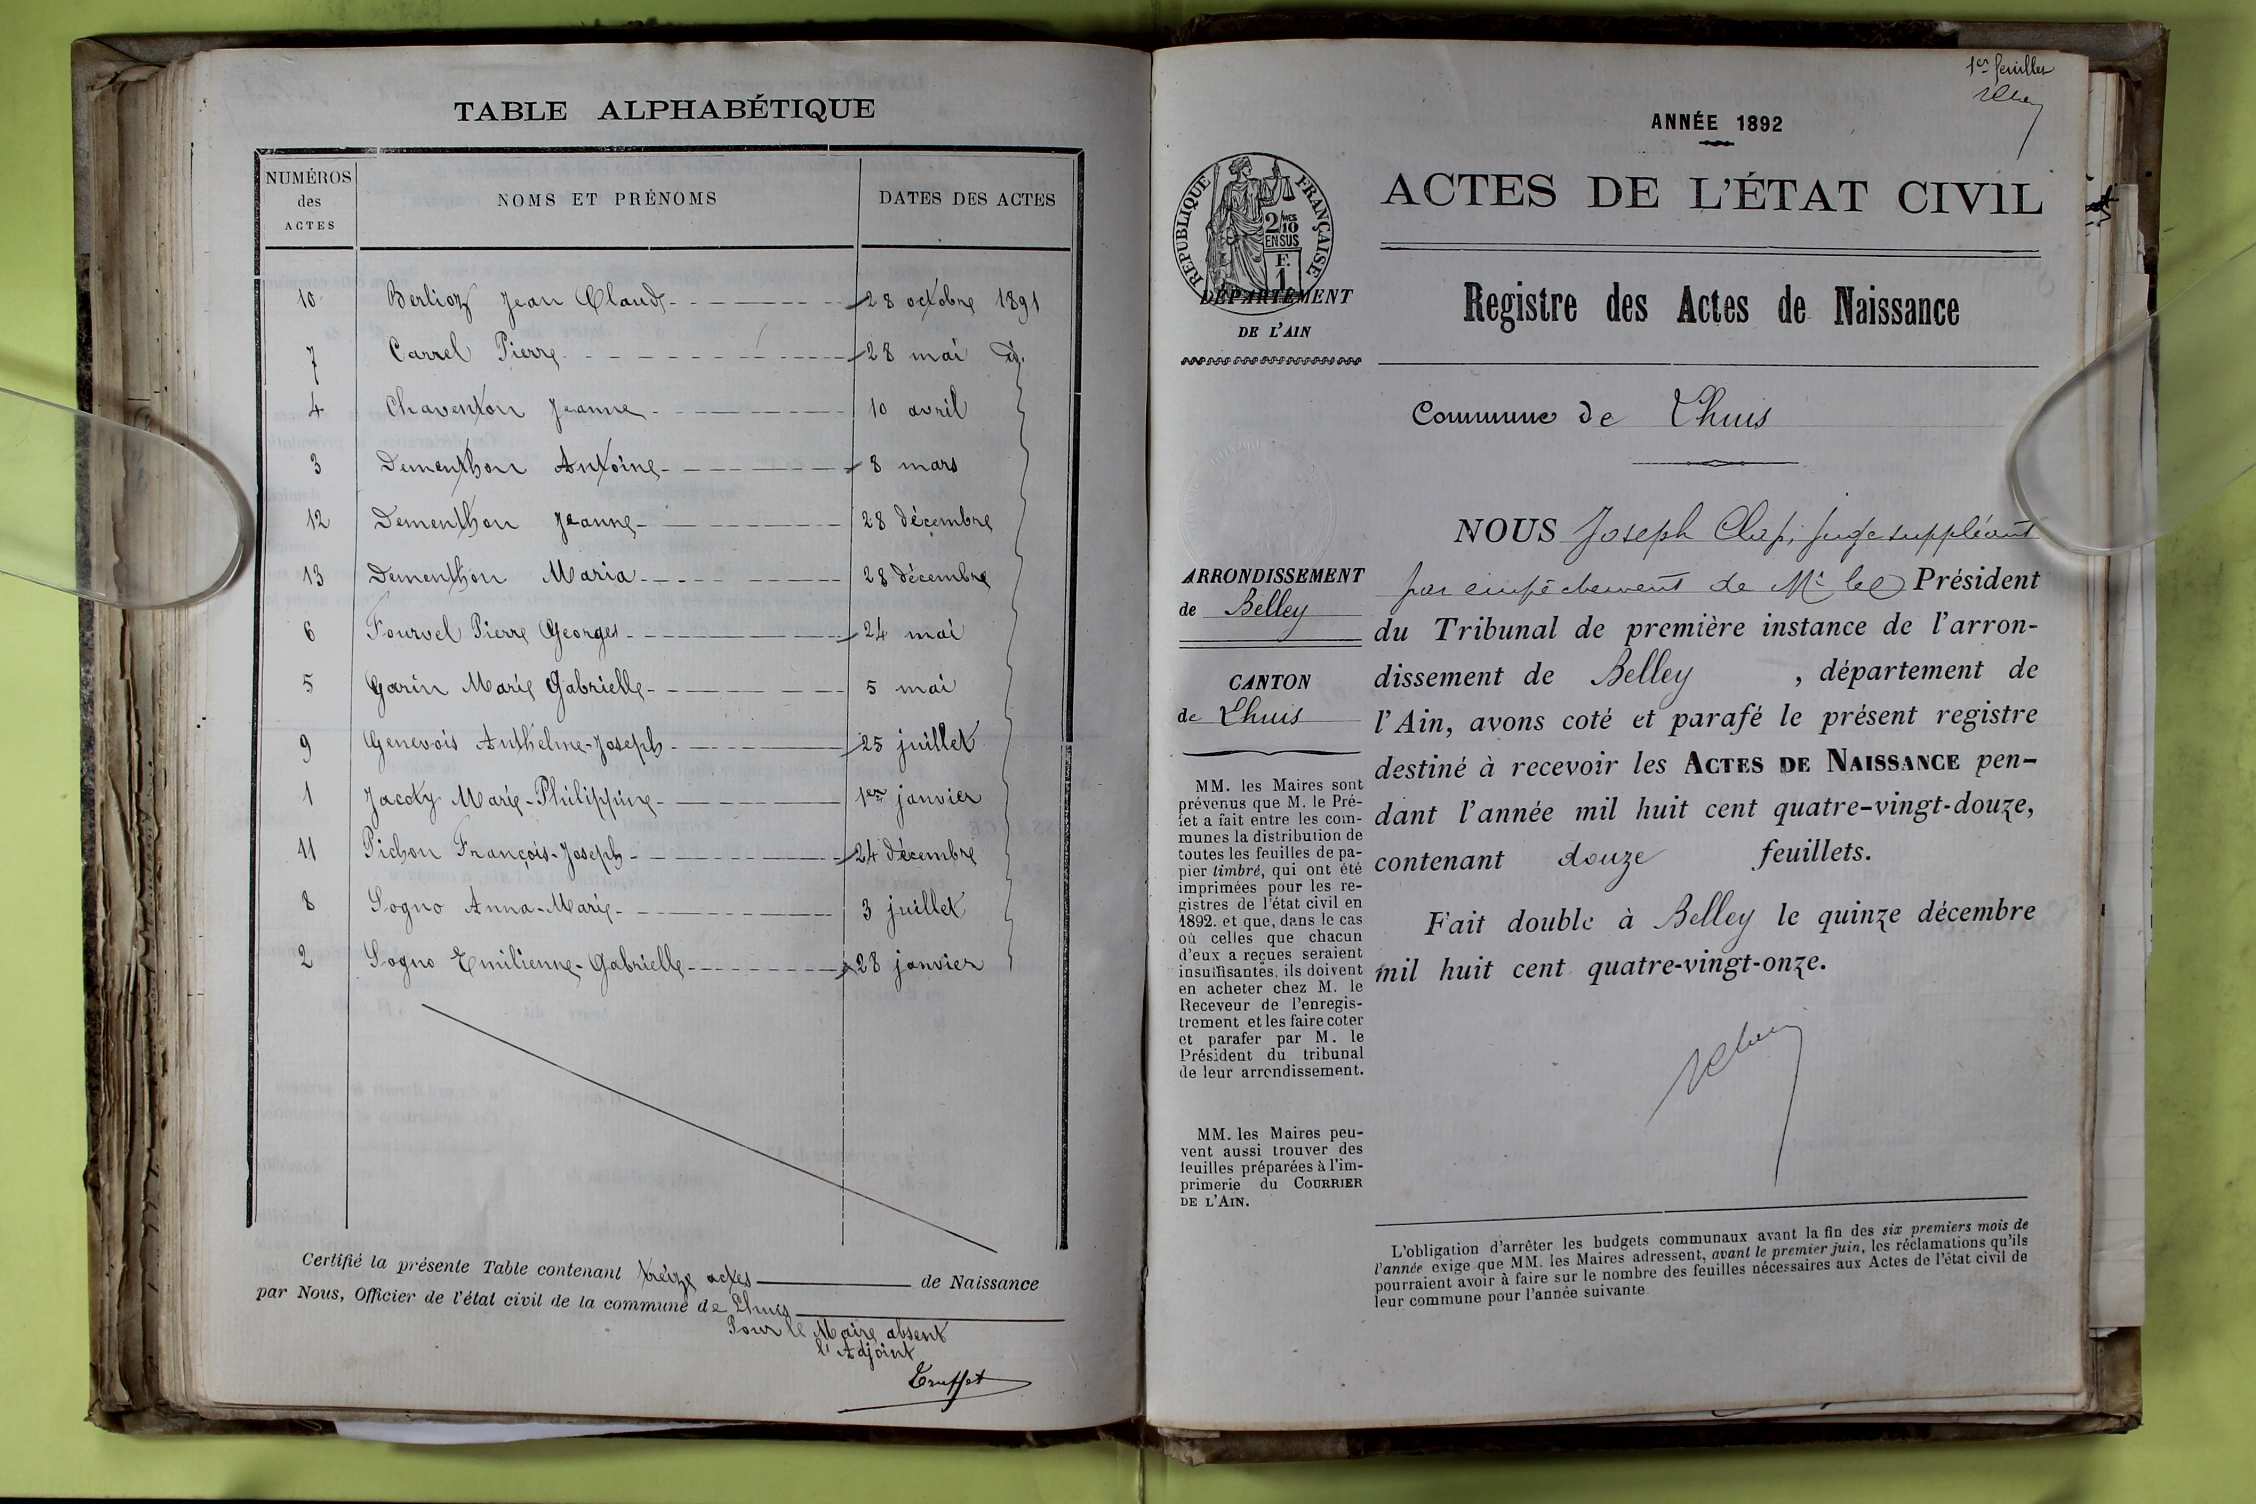 TABLE ALPHABÉTIQUE
NUMÉROS des ACTES NOMS ET PRÉNOMS DATES DES ACTES
10 Berlioz Jean Claude 28 octobre 1891
7 Carrel Pierre 28 mai id.
4 Chaventon Jeanne 10 avril
3 Dementhon Antoine 8 mars
12 Dementhon Jeanne 28 décembre
13 Dementhon Maria 28 décembre
6 Fourvel Pierre Georges 24 mai
5 Garin Marie Gabrielle 5 mai
9 Genevois Anthelme-Joseph 25 juillet
1 Jacoty Marie-Philippine 1er janvier
11 Pichon François-Joseph 24 décembre
8 Sogno Anna-Marie 3 juillet
2 Sogno Emilienne-Gabrielle 28 janvier
Certifié la présente Table contenant treize actes de Naissance
par Nous, Officier de l'état civil de la commune de Lhuis
Pour le Maire absent
l'Adjoint
Truffet
1er feuillet
ANNÉE 1892
ACTES DE L'ÉTAT CIVIL
RÉPUBLIQUE FRANÇAISE
2/10 EN SUS
F. 1
DÉPARTEMENT
DE L'AIN
Registre des Actes de Naissance
Commune de Lhuis
ARRONDISSEMENT
de Belley
CANTON
de Lhuis
MM. les Maires sont
prévenus que M. le Pré-
fet a fait entre les com-
munes la distribution de
toutes les feuilles de pa-
pier timbré, qui ont été
imprimées pour les re-
gistres de l'état civil en
1892. et que, dans le cas
où celles que chacun
d'eux a reçues seraient
insuffisantes, ils doivent
en acheter chez M. le
Receveur de l'enregis-
trement et les faire coter
et parafer par M. le
Président du tribunal
de leur arrondissement.
MM. les Maires peu-
vent aussi trouver des
feuilles préparées à l'im-
primerie du COURRIER
DE L'AIN.
NOUS Joseph Clap, juge suppléant
par empêchement de Mr le Président
du Tribunal de première instance de l'arron-
dissement de Belley, département de
l'Ain, avons coté et parafé le présent registre
destiné à recevoir les ACTES DE NAISSANCE pen-
dant l'année mil huit cent quatre-vingt-douze,
contenant douze feuillets.
Fait double à Belley le quinze décembre
mil huit cent quatre-vingt-onze.
L'obligation d'arrêter les budgets communaux avant la fin des six premiers mois de
l'année exige que MM. les Maires adressent, avant le premier juin, les réclamations qu'ils
pourraient avoir à faire sur le nombre des feuilles nécessaires aux Actes de l'état civil de
leur commune pour l'année suivante